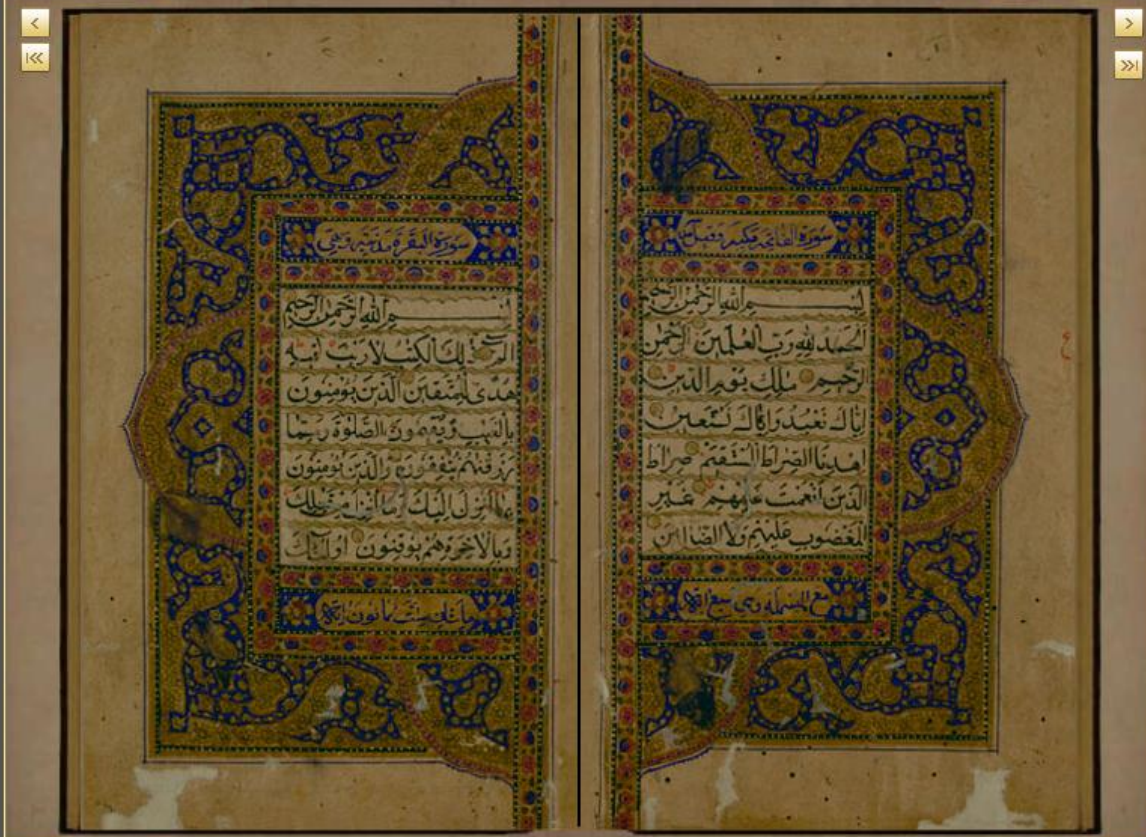 سورة الفاتحة مكية وقيل
بسم الله الرحمن الرحيم
الحمد لله رب العلمين الرحمن
الرحيم ملك يوم الدين
اياك نعبد واياك نستعين
اهدنا الصراط المستقيم صراط
الذين انعمت عليهم غير
المغضوب عليهم ولا الضالين
مع البسملة وهي سبع آية
سورة البقرة مدنية وهي
بسم الله الرحمن الرحيم
الم ذلك الكتب لا ريب فيه
هدى للمتقين الذين يؤمنون
بالغيب ويقيمون الصلوة ومما
رزقنهم ينفقون والذين يؤمنون
بما انزل اليك وما انزل من قبلك
وبالاخرة هم يوقنون اولئك
مائتان وست ثمانون آية